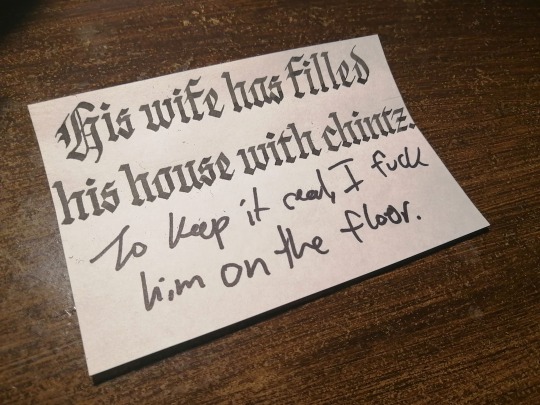 His wife has filled
his house with chintz.
To keep it real, I fuck
him on the floor.